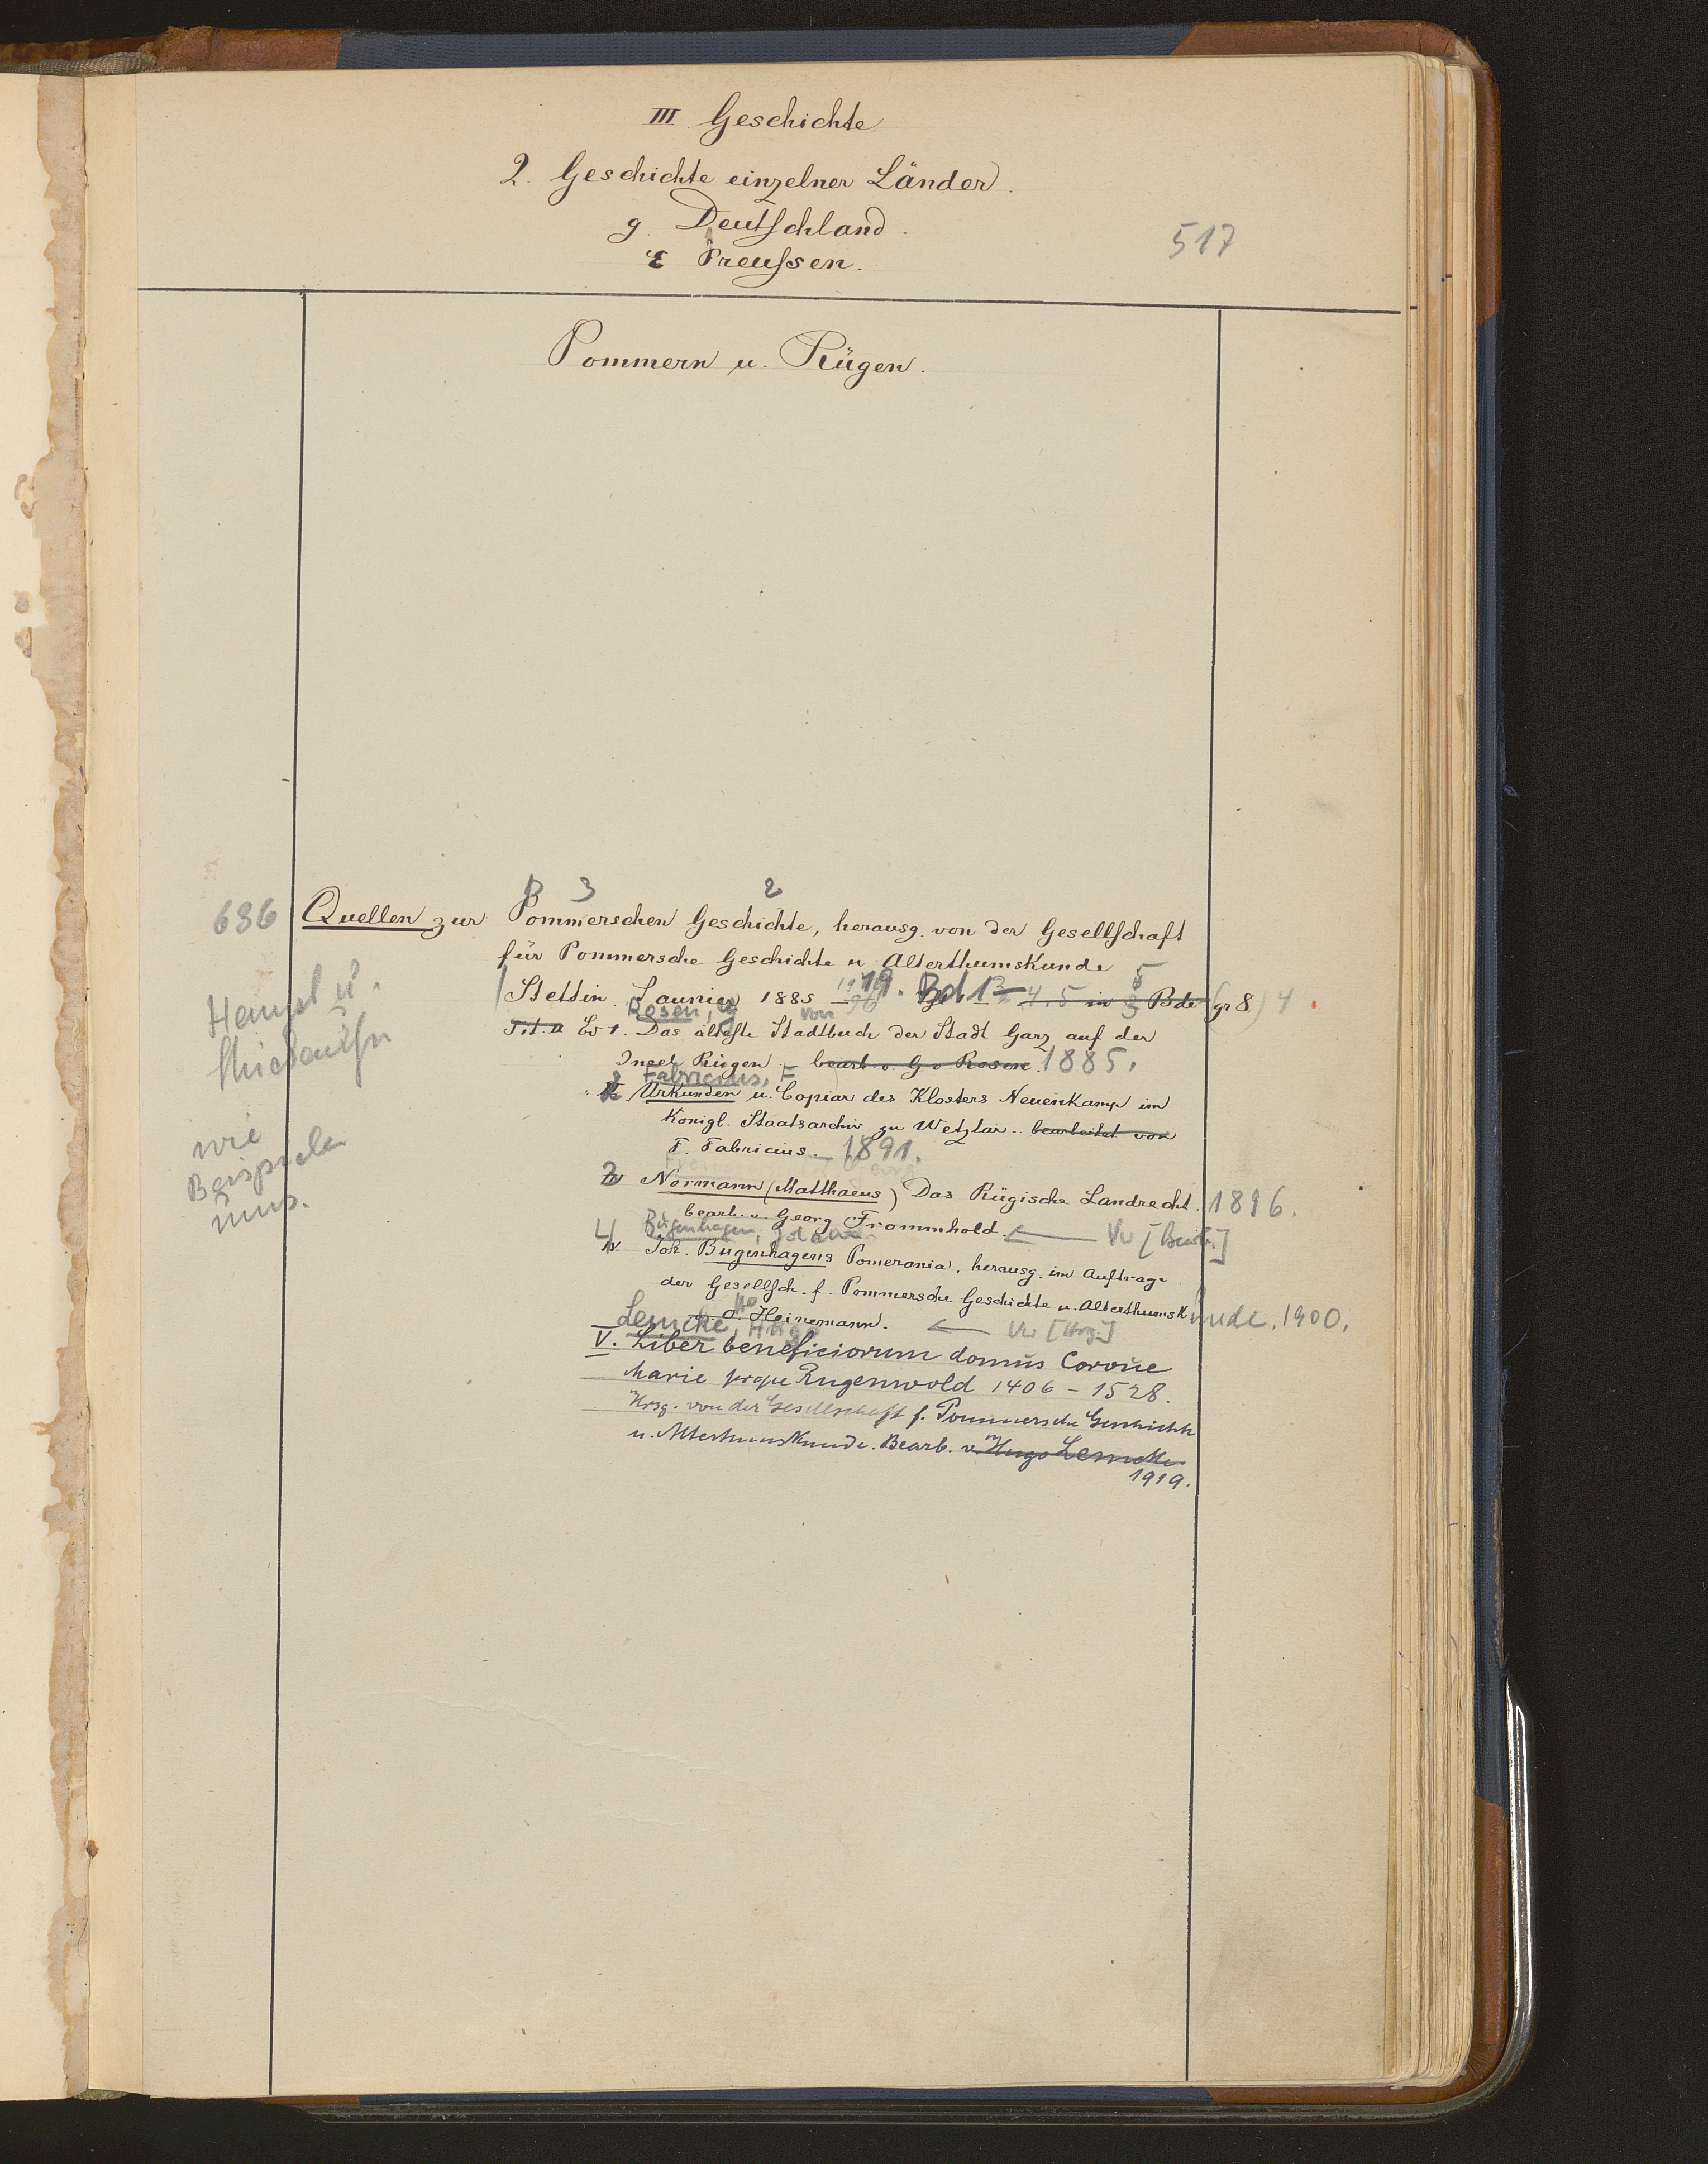 III Geschichte
2. Geschichte einzelner Länder.
g. Deutschland.
517
ε Preußen.
Pommern u. Rügen.
B 3 2
686 Quellen zur Pommerschen Geschichte, herausg. von der Gesellschaft
für Pommersche Geschichte u Alterthumskunde
Stettin Saunier 1885 19. Bd 1 4. 5 in Bde (gr 8) 4
Rosen, G von
Tit. Bd 1. Das älteste Stadtbuch der Stadt Garz auf der
Insel Rügen bearb v. G v Rosen. 1885.
Fabricius, F
2 Urkunden u. Copiar des Klosters Neuenkamp im
Königl. Staatsarchiv zu Wetzlar. bearbeitet von
F. Fabricius. 1891.
3 Normann (Matthaeus) Das Rügische Landrecht. 1896.
bearb. v. Georg Frommhold. ← Vw [Bearb.]
Bugenhagen, Johann
4 IV Joh. Bugenhagens Pomerania, herausg. im Auftrage
der Gesellsch. f. Pommersche Geschichte u. Alterthumskunde, 1900.
v. Otto Heinemann. ← Vw [Hrsg.]
Lemcke, Hugo
V. Liber beneficiorum domus Corone
Marie prope Rugenwold 1406 - 1528.
Hrsg. von der Gesellschaft f. Pommersche Geschichte
u. Altertumskunde. Bearb. v. Hugo Lemcke
1919.
wie
Beispiele